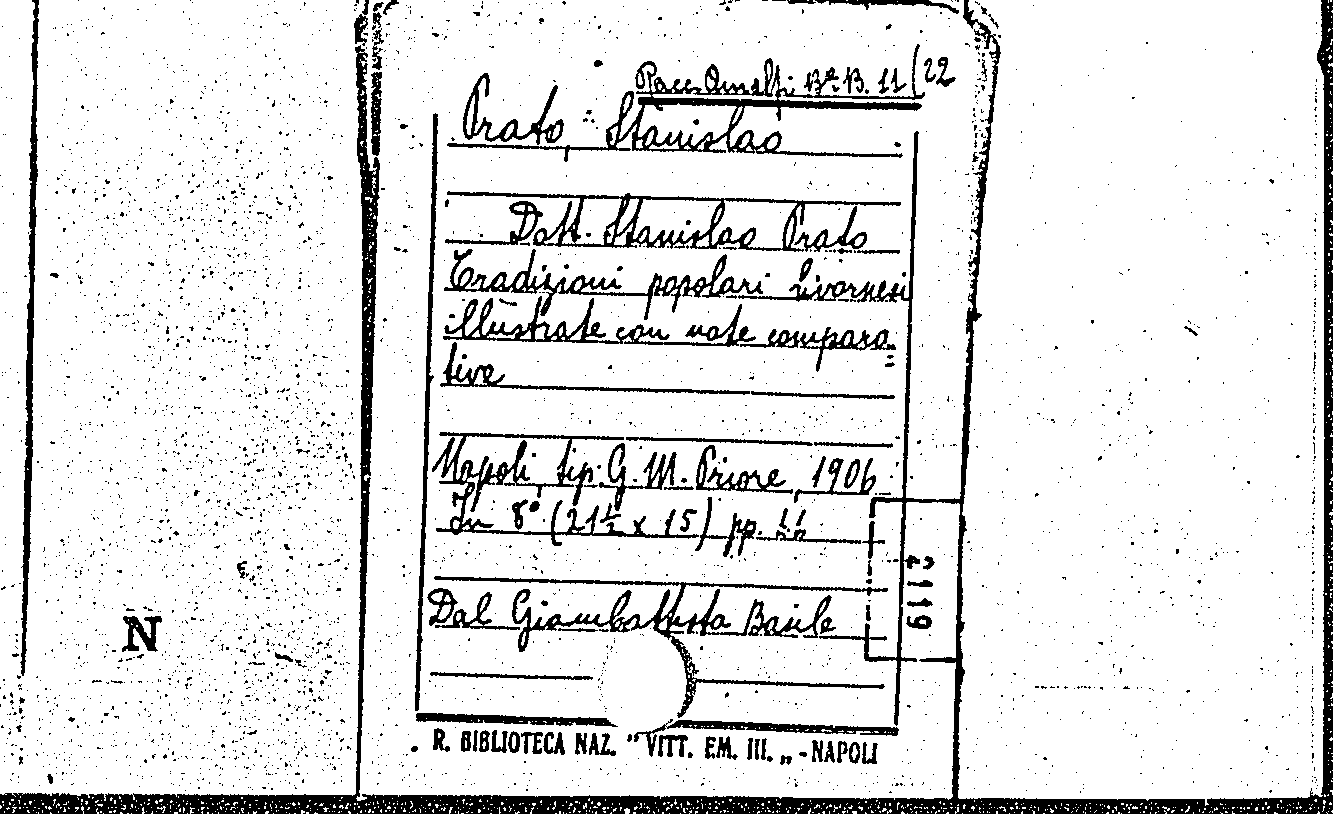 Racc. Amalfi Bª. B. 11 (22
Prato, Stanislao
Dott. Stanislao Prato
Tradizioni popolari Livornesi
illustrate con note compara=
tive
Napoli, tip. G. M. Priore, 1906
In 8° (21½ x 15) pp.
Dal Giambattista Basile
2119
N
R. BIBLIOTECA NAZ. "VITT. EM. III.„ - NAPOLI